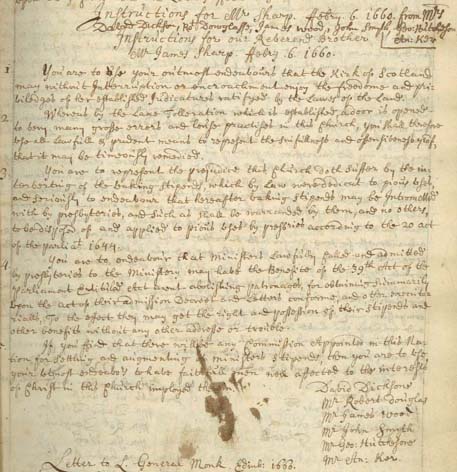 Instructions for Mr Sharp. Febry. 6. 1660. from Mrs
David Dickson, Ro: Dowglasse, James Wood, John Smyth, Geo: Hutcheson
Instructions for our Reverend Brother And: Ker
Mr James Sharp. Febry. 6. 1660.
1 You are to use your outmost endeavours that the Kirk of Scotland
may without Interruption or encroachment enjoy the freedome and pri
viledges of her established Judicatures ratifyed by the Lawes of the Land.
2 Wheras by the Lax Tolleration which is established, a door is opened
to very many grosse errors and loose practises in this Church, you shall therefore
use all lawfull & prudent means to represent the sinfullness and offensiveness
that it may be timeously remedied.
3 You are to represent the prejudice this Church doth suffer by the in
terverting of the Vaking stipends, which by Law were dedicat to pious uses,
and seriously to endeavour that hereafter vaking stipends may be Intromitted
with by presbyteries, and such as shall be warranded by them, and no others,
to be disposed of and applyed to pious uses by presbries according to the 20 act
of the parliat 1644.
4 You are to endeavour that Ministers Lawfully called and admitted
by presbyteries to the Ministery may have the Benefite of the 39th Act of the
Parliament Entituled Act anent abolishing patronages, for obtaining Summarily
upon the act of their admission Decreet and Letters conforme, and other executor
ialls, To the effect they may get the right and possession of their stipends and
other benefit without any other address or trouble.
If you find that there will be any Commission Appointed in this Nation
for settling and augmenting of Ministers stipends, then you are to use
your utmost endeavors to have faithfull men well affected to the interests
of Christ in this Church imployed
David Dicksone
Mr Robert Douglas
Mr James Wood
Mr John Smyth
Mr Geo: Hutchesone
Mr An: Ker.
Letter to L. Generall Monk Edinb: 1660.